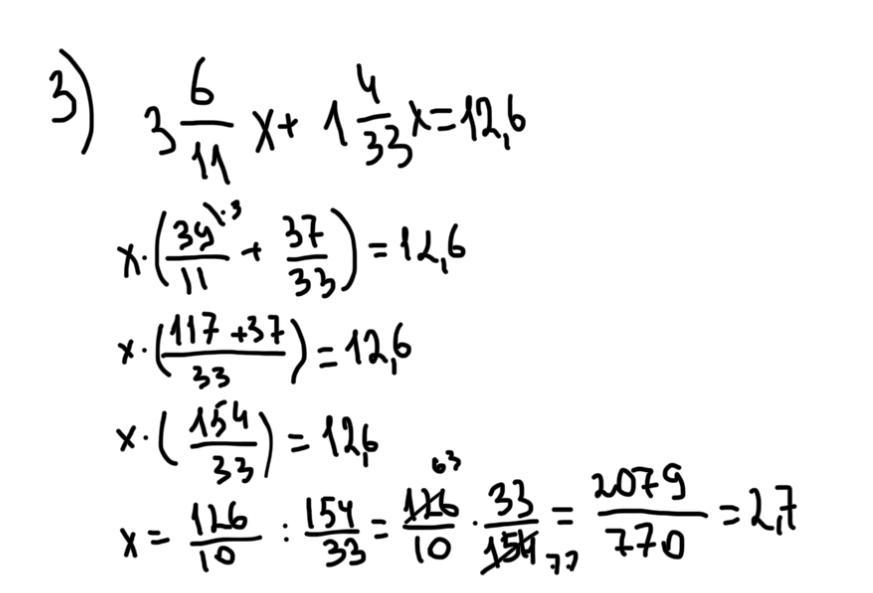 3) 3 6/11 x + 1 4/33 x = 12,6
x · (39\·3/11 + 37/33) = 12,6
x · (117 + 37/33) = 12,6
x · (154/33) = 12,6
x = 126/10 : 154/33 = 126 63/10 · 33/154 77 = 2079/770 = 2,7